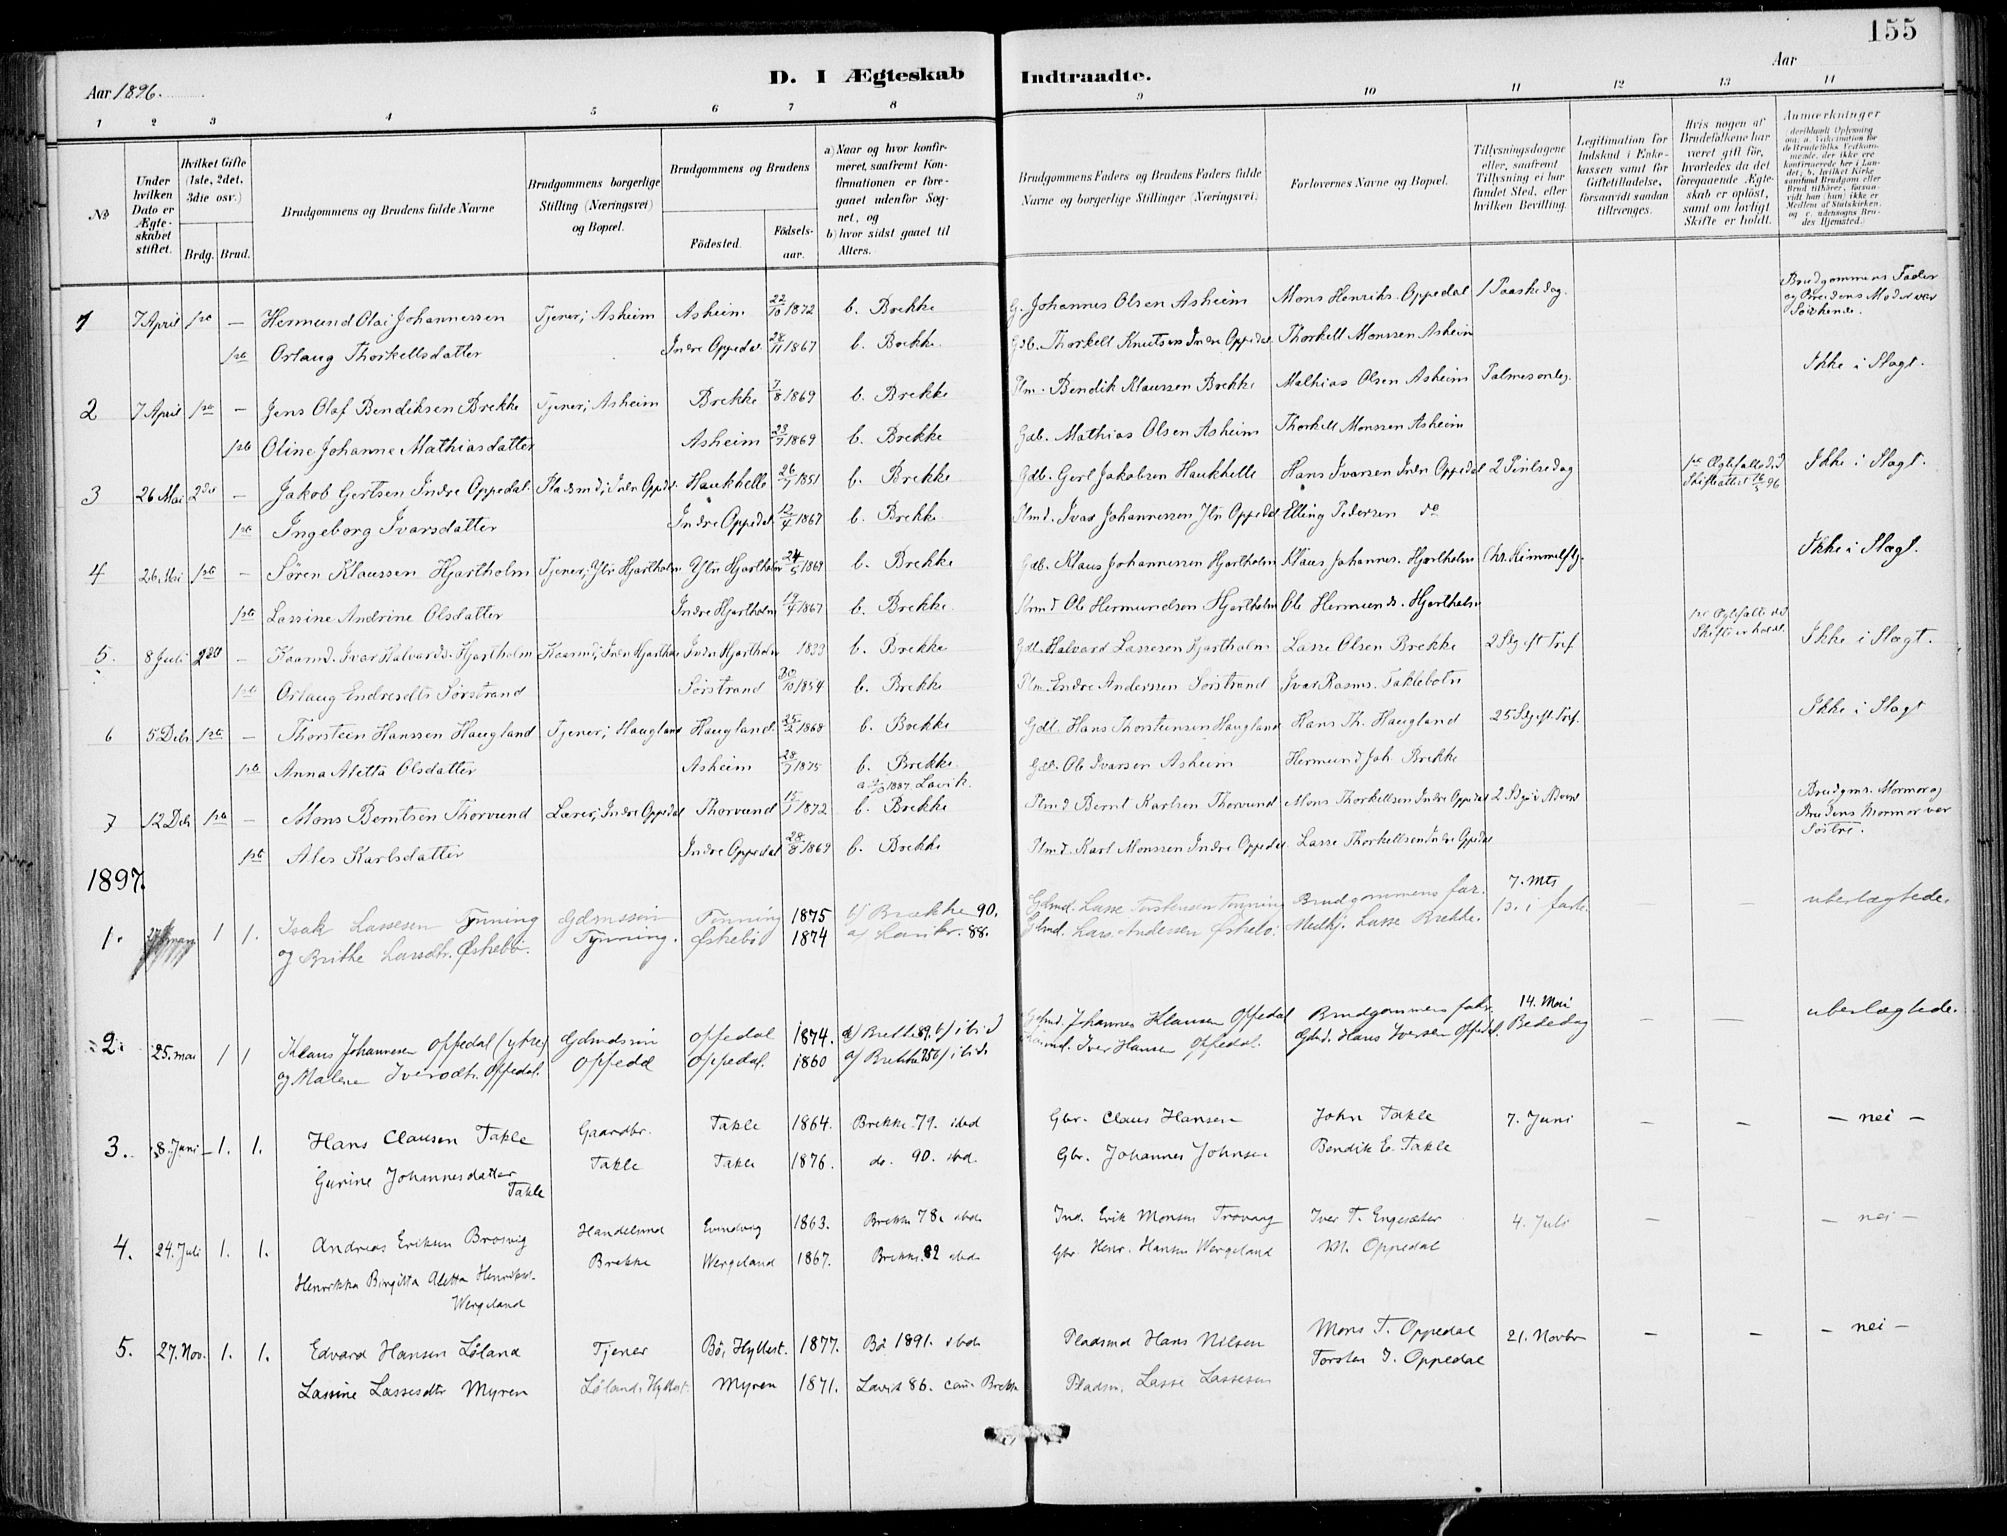 155
D. I Ægteskab Indtraadte.
Aar 1896.
Aar
1 2 3 4 5 6 7 8 9 10 11 12 13 14
No
Under hvilken Dato er Ægteskabet stiftet.
Hvilket Gifte (1ste, 2det, 3die osv.)
Brdg. Brud.
Brudgommens og Brudens fulde Navne
Brudgommens borgerlige Stilling (Næringsvei) og Bopæl.
Brudgommens og Brudens
Födested.
Födsels-aar.
a) Naar og hvor konfirmeret, saafremt Konfirmationen er foregaaet udenfor Sognet, og
b) hvor sidst gaaet til Alters.
Brudgommens Faders og Brudens Faders fulde Navne og borgerlige Stillinger (Næringsvei)
Forlovernes Navne og Bopæl.
Tillysningsdagene eller, saafremt Tillysning ei har fundet Sted, efter hvilken Bevilling.
Legitimation for Indskud i Enkekassen samt for Giftetilladelse, forsaavidt saadan tiltrænges.
Hvis nogen af Brudefolkene har været gift för, hvorledes da det foregaaende Ægteskab er oplöst, samt om lovligt Skifte er holdt.
Anmærkninger
1 7 April 1ste — Hermund Olai Johannessen Tjener, Asheim Asheim 22/10 1872 b. Brekke G. Johannes Olsen Asheim Mons Henriks. Oppedal 1 Paaskedag. Brudgommens Fader og Brudens Moder var Søskende.
1ste Orlaug Thorkellsdatter Indre Oppedal 24/11 1867 b. Brekke. Gdb. Thorkell Knutsen Indre Oppedal Thorkell Monssen Asheim
2 7 April 1ste — Jens Olaf Bendiksen Brekke Tjener, Asheim Brekke 7/8 1869 b. Brekke Plm. Bendik Klaussen Brekke Mathias Olsen Asheim Palmesøndg. Ikke i Slægt.
1ste Oline Johanne Mathiasdatter Asheim 23/7 1869 b. Brekke Gdb. Mathias Olsen Asheim Thorkell Monssen Asheim
3 26 Mai 2det — Jakob Gertsen Indre Oppedal Pladsmd, Indre Oppedal Haukhelle 26/7 1851 b. Brekke Gdb. Gert Jakobsen Haukhelle Hans Ivarsen Indre Oppedal 2 Pintsedag 1ste Ægtefælle død Skifteattest 16/5 96 Ikke i Slægt.
1ste Ingeborg Ivarsdatter Indre Oppedal 12/4 1867 b. Brekke. Plmd. Ivar Johannessen Oppedal Elling Pedersen do
4 26. Mai 1ste — Søren Klaussen Hjartholm Tjener, Ytre Hjartholm Ytre Hjartholm 24/5 1869 b. Brekke Gdb. Klaus Johannessen Hjartholm Klaus Johannes. Hjartholm Chr. Himmelftg. Ikke i Slægt.
1ste Lassine Andrine Olsdatter Indre Hjartholm 1867 b. Brekke. Plmd Ole Hermundsen Hjartholm Ole Hermunds. Hjartholm
5. 8 Juli 2det — Kaarmd. Ivar Halvards. Hjartholm Kaarmd, Indre Hjartholm Indre Hjartholm 1833 b. Brekke Gdb. Halvard Lassesen Hjartholm Lasse Olsen Brekke 2 Sg. eft Tref. 1ste Ægtefælle død Skifte er holdt. Ikke i Slægt.
1ste Orlaug Endresdtr Sørstrand Sørstrand 30/10 1854 b. Brekke Plm. Endre Anderssen Sørstrand Ivar Rasms. Taklebotn
6 5. Debr 1ste — Thorstein Hanssen Haugland Tjener, Haugland Haugland 25/2 1868 b. Brekke Gdb. Hans Thorsteinsen Haugland Hans Th. Haugland 25 Sg. eft. Tref. Ikke i Slægt
1ste Anna Aletta Olsdatter Asheim 28/7 1875 b. Brekke. Gdb. Ole Ivarsen Asheim Hermund Joh. Brekke
7 12 Deb 1ste — Mons Berntsen Thorvund Lærer, Indre Oppedal Thorvund 15/7 1872 a. 1887. Lavik. b. Brekke Plmd Bernt Karlsen Thorvund Mons Thorkellsen Indre Oppedal 2 Sg. i Advent Brudgms. Mormor og Brudens Mormor var Søstre.
1ste Ales Karlsdatter Indre Oppedal 28/8 1869 b. Brekke Plmd. Karl Monssen Indre Oppedal Lasse Thorkellsen Indre Oppedal
1897.
1. 1 1. Isak Lassesen Tynning Gdmssøn Tynning 1875 b) Brekke 90. Gdmd. Lasse Torstensen Tynning Brudgommens far. 7. Mts — — ubeslægtede.
og Brithe Larsdtr. Østrebø. Tynning. Østrebø 1874 a) Lavik. 88. Gdmd. Lars Andersen Østrebø Medhj. Lasse Brekke. 1s. i faste
2. 25. mai 1 1 Klaus Johannesen Oppedal (ytre) Gdmdssøn Oppedal 1874. a) Brekke 89. b) ibid Gdmd. Johannes Klausen Oppedal Brudgommens fader 14. Mai Bededag — — ubeslægtede.
og Malene Iversdtr. Oppedal. Oppedal Oppedal. 1860 a) Brekke 75 b) ibid. Iver Hansen Oppedal. Gbd. Hans Iversen Oppedal.
3. 8. Juni 1. 1. Hans Clausen Takle Gaardbr. Takle 1864. Brekke 79. ibid Gbr. Claus Hansen John Takle 7. Juni — — — nei —
Gurine Johannesdatter Takle Takle Takle 1876. do. 90. ibid. Gbr. Johannes Johnsen Bendik E. Takle
4. 24. Juli 1. 1. Andreas Eriksen Brosvig Handelsmd Evindvig 1863. Brekke 78. ibid Ind. Erik Monsen Trovaag Iver T. Engesæter 4. Juli — — — nei —
Henrikka Birgitta Aletta Henriksd. Wergeland Brekke Wergeland 1867. Brekke. 82 ibid Gbr. Henr. Hansen Wergeland M. Oppedal
5. 27. Nov. 1. 1. Edvard Hansen Løland Tjener Bø, Hyllest. 1877. Bø 1891. ibid Pladsmd Hans Nilsen Mons T. Oppedal 21. Novbr — — — nei —
Lassine Lassesdtr Myren Løland, Hyllest. Myren 1871. Lavik 86. Brekke Pladsm. Lasse Lassesen Torsten I. Oppedal